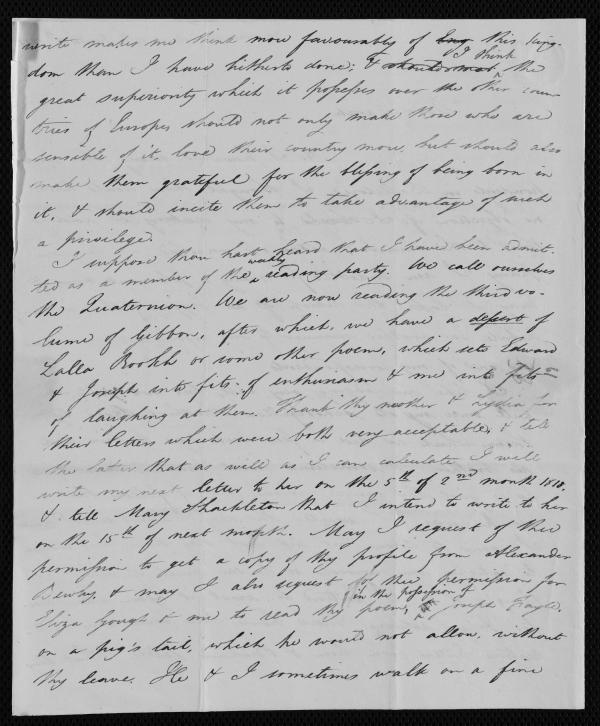 write makes me think more favourably of Eng this King-
dom than I have hitherto done; & I think the
great superiority which it possesses over the other coun
tries of Europe should not only make those who are
sensible of it, love their country more, but should also
make them grateful for the blessing of being born in
it, & should incite them to take advantage of such
a privilege.
I suppose thou hast heard that I have been admit-
ted as a member of the weekly reading party. We call ourselves
the Quaternion. We are now reading the third vo-
lume of Gibbon, after which, we have a desert of
Lalla Rookh or some other poem, which sets Edward
& Joseph into fits of enthusiasm & me into fits
of laughing at them. Thank thy mother & Lydia for
their letters which were both very acceptable, & tell
the latter that as well as I can calculate I will
write my next letter to her on the 5th of 2nd month 1818.
& tell Mary Shackleton that I intend to write to her
on the 15th of next month. May I request of thee
permission to get a copy of thy profile from Alexander
& may I also request of thee permission for
Eliza Gough & me to read thy poem, in the possession of Joseph
on a pig's tail, which he would not allow, without
thy leave. He & I sometimes walk on a fine